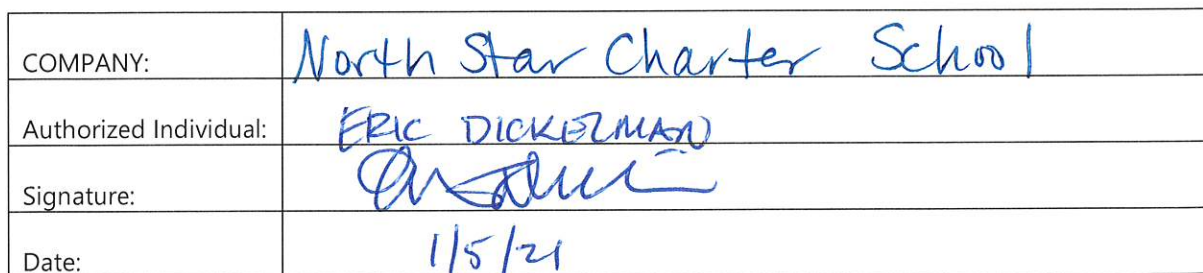 COMPANY: North Star Charter School
Authorized Individual: ERIC DICKERMAN
Signature:
Date: 1/5/21